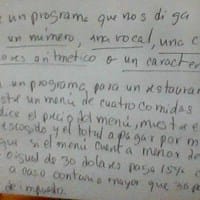 un programa que nos diga
un número, una vocal, una c
ores aritmético o un caracter
un programa para un restaura
un menú de cuatro comidas
dice el precio del menú, muestre e
escogido y el total a pagar por m
si el menú cuenta menor de
o igual de 30 dolares paga 15%
caso contrario mayor que 30 pa
de impuesto.